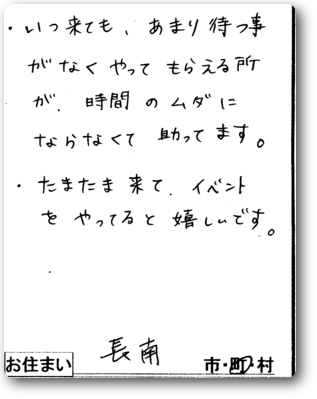 ・いつ来ても、あまり待つ事
がなくやってもらえる所
が、時間のムダに
ならなくて助ってます。
・たまたま来て、イベント
をやってると嬉しいです。
お住まい 長南 市・町・村